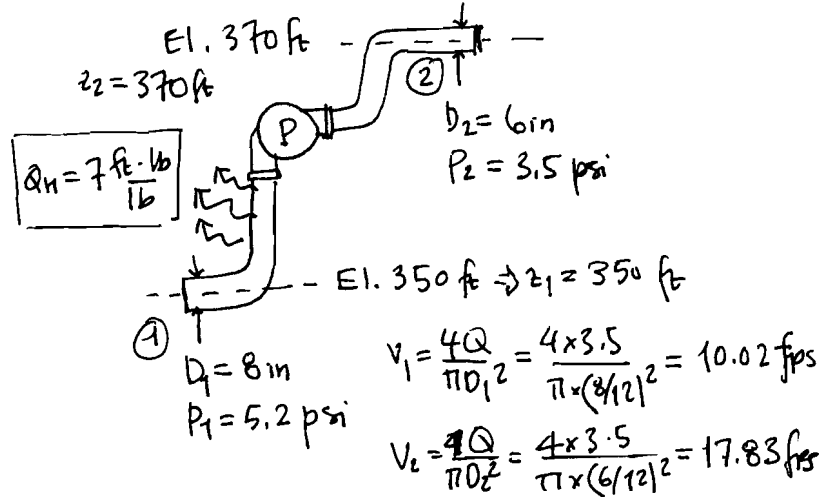 El. 370 ft
z₂ = 370 ft
②
P
D₂ = 6in
P₂ = 3.5 psi
Q_H = 7 ft·lb/lb
El. 350 ft → z₁ = 350 ft
①
D₁ = 8in
P₁ = 5.2 psi
V₁ = 4Q/πD₁² = 4×3.5/π×(8/12)² = 10.02 fps
V₂ = 4Q/πD₂² = 4×3.5/π×(6/12)² = 17.83 fps